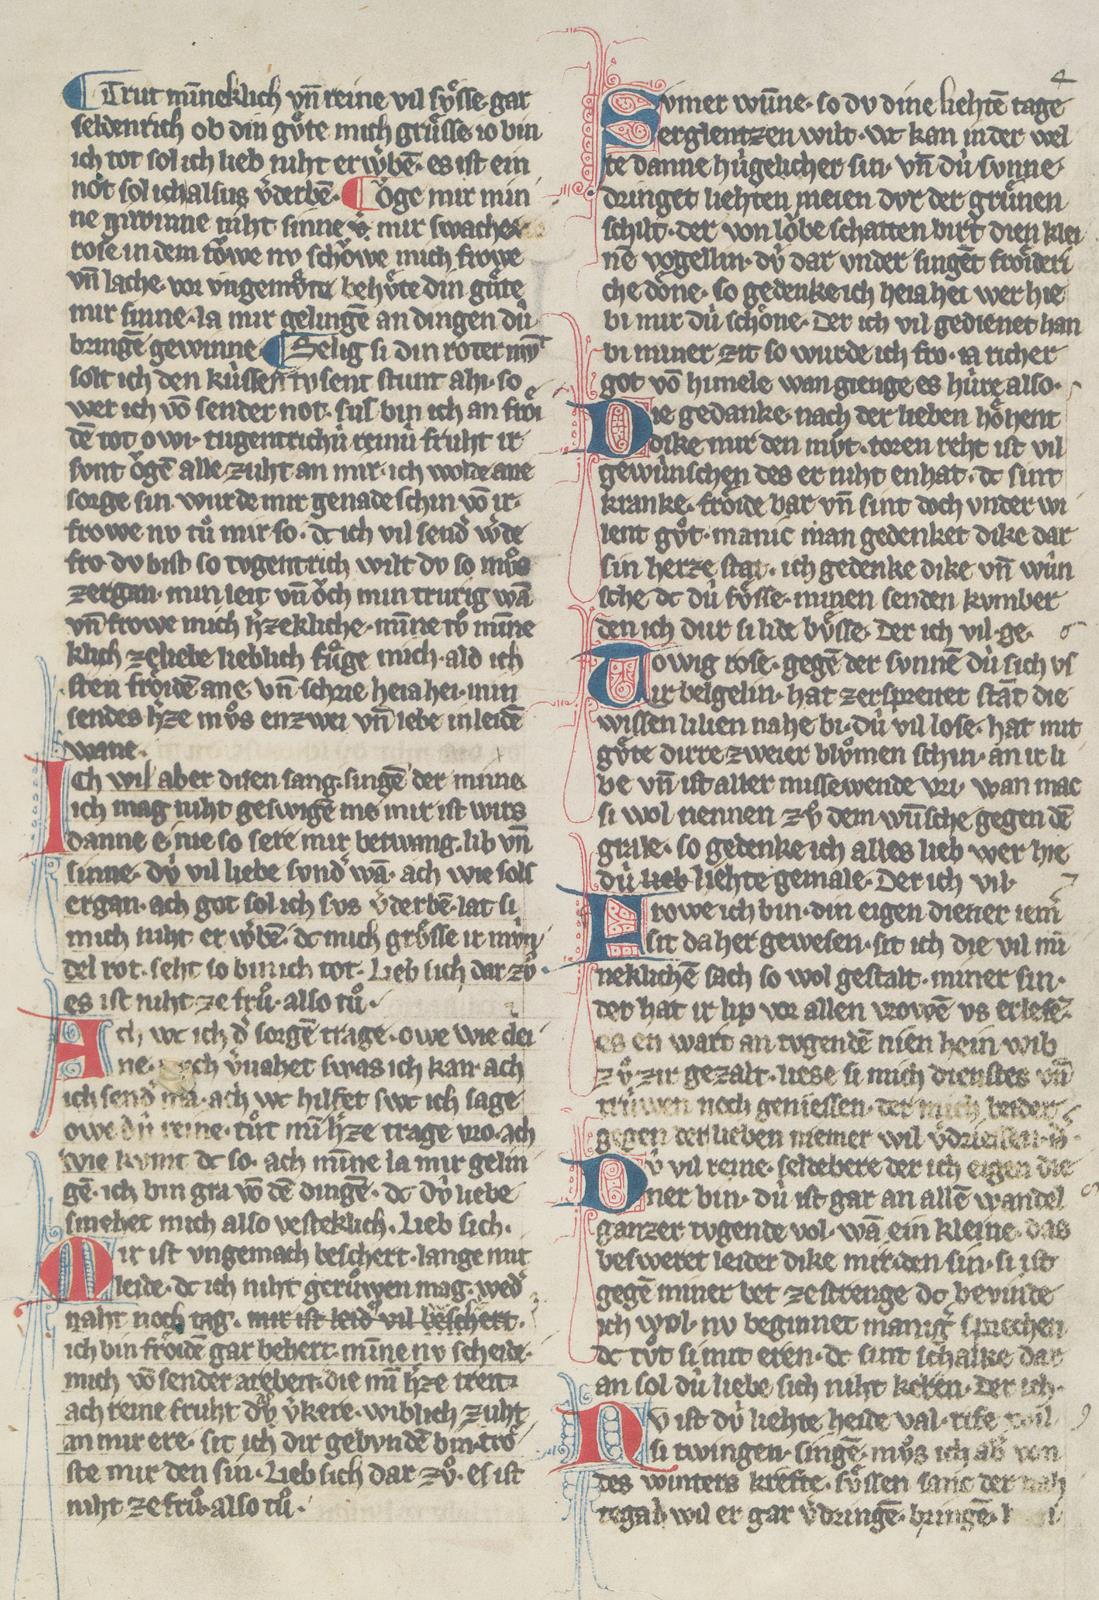 Trut miñeklich vñ reine vil sv̊sse gar
seldenrich ob din gv̊te mich grv̊sse io bin
ich tot sol ich lieb niht erwͤbē· es ist ein
not sol ich alsus vͤderbē· Öge mir min
ne gwinne niht sinne mir swachē
rose in dem töwe nv schöwe mich frowe
vñ lache· vor vngemv̊te behv̊te din gv̊te
mir sinne· la mir gelingē an dingen dü
bringē gewinne Selig si din roter mv̄t
solt ich den küssen tvsent stunt ahi· so
wer ich vō sender not· sus bin ich an fröi
dē tot owi· tugentrichü reinü fruht ir
svnt ögē alle zuht an mir· ich wolde ane
sorge sin· wurde mir genade schin vō ir·
frowe nv tů mir so· dc ich vil send̾ wͤde
fro dv bist so tvgentrich wilt dv so mv̊s
zergan· min leit vñ öch min trurig wā
vñ frowe mich hͤzekliche· miñe tv̊ miñe
klich ze liebe lieblich fůge mich· ald ich
sten fröidē ane· vñ schrie heia hei· min
sendes hͤze mv̊s enzwei vñ lebe in leidē
wane·
Ich wil aber disen sang· singē der minne
ich mag niht geswigē me mir ist wirs
danne e· nie so sere mir betwang· lib vñ
sinne· dv̊ vil liebe svnd̾ wā· ach wie sols
ergan· ach got sol ich svs vͤderbē· lat si
mich niht erwͤbē· dc mich grv̊sse ir mvn
del rot· seht so bin ich tot· Lieb sich dar zv̊·
es ist niht ze frů· also tů·
Ach wc ich d̾ sorgē trage· owe wie clei
ne· noch vͤnahet swas ich kan ach
ich send̾ mā· ach wc hilfet swc ich sage
owe dv̊ reine· tůt mī hͤze trage vro· ach
wie kvmt dc so· ach miñe la mir gelin
gē· ich bin gra vō dē dingē· dc dv̊ liebe
smehet mich also vesteklich· Lieb sich·
Mir ist vngemach beschert· lange mit
leide· dc ich niht gerůwen mag· wed̾
naht noch tag· mir ist leid̾ vil beschert·
ich bin fröidē gar behert· miñe nv scheide·
mich vō sender arebeit· die mī hͤze treit·
ach reine fruht dv̊ vͤkere· wiblich zuht
an mir ere· sit ich dir gebvndē bin· trö
ste mir den sin· Lieb sich dar zv̊· es ist
niht ze frů· also tů·
4
Svmer wūne· so dv dine liehtē tage
erglentzen wilt· wc kan in der wel
te danne hügelicher sin· vñ dü svnne·
dringet liehten meien dvr der grünen
schilt· der von löbe schatten birt dien klei
nē vogellin· dv̊ dar vnder singēt fröideri
che döne· so gedenke ich heia hei wer hie
bi mir dü schöne· Der ich vil gedienet han
bi miner zit so wurde ich fro· ia richer
got vō himele wan gienge es hüre also·
Die gedanke· nach der lieben höhent
dike mir den mv̊t· toren reht ist vil
gewünschen des er niht enhat· dc sint
kranke· fröide bar vñ sint doch vnder wi
lent gv̊t· manic man gedenket dike dar
sin herze stat· ich gedenke dike vñ wün
sche dc dü sv̊sse· minen senden kvmber
den ich dur si lide bv̊sse· Der ich vil· ge·
Towig rose· gegē der svnnē dü sich vf
ir belgelin· hat zerspreitet stāt die
wissen lilien nahe bi· dü vil lose· hat mit
gv̊te dirre zweier blůmen schin· an ir li
be vñ ist aller missewende vri· wan mac
si wol nennen zv̊ dem wūsche gegen dē
grale· so gedenke ich alles lieb wer hie
dü lieb liehte gemale· Der ich vil·
Frowe ich bin· din eigen diener iem̄
sit da her gewesen· sit ich die vil mi
neklichē sach so wol gestalt· miner sin·
der hat ir lip vor allen vrowē vs erlesē·
es en wart an tvgendē nien hein wib
zv̊ zir gezalt· liese si mich dienstes vñ
trüwen noch geniessen· der mich beider
gegen der lieben niemer wil vͤdriessen·
Dv̊ vil reine· seldebere der ich eigen die
ner bin· dü ist gar an allē wandel
ganzer tvgende vol· wā ein kleine· das
besweret leider dike mir den sin· si ist
gegē miner bet ze strenge dc bevinde
ich wol· nv beginnet manig̾ sprechen
dc tv̊t si mit eren· dc sint schalke dar
an sol dü liebe sich niht keren· Der ich·
Nv ist dv̊ liehte heide val· rife
si twingen· singē· mv̊s ich ab̾ von
des winters krefte· sv̊ssen sanc der nah
tegal· wil er gar vͤdringē· bringē·